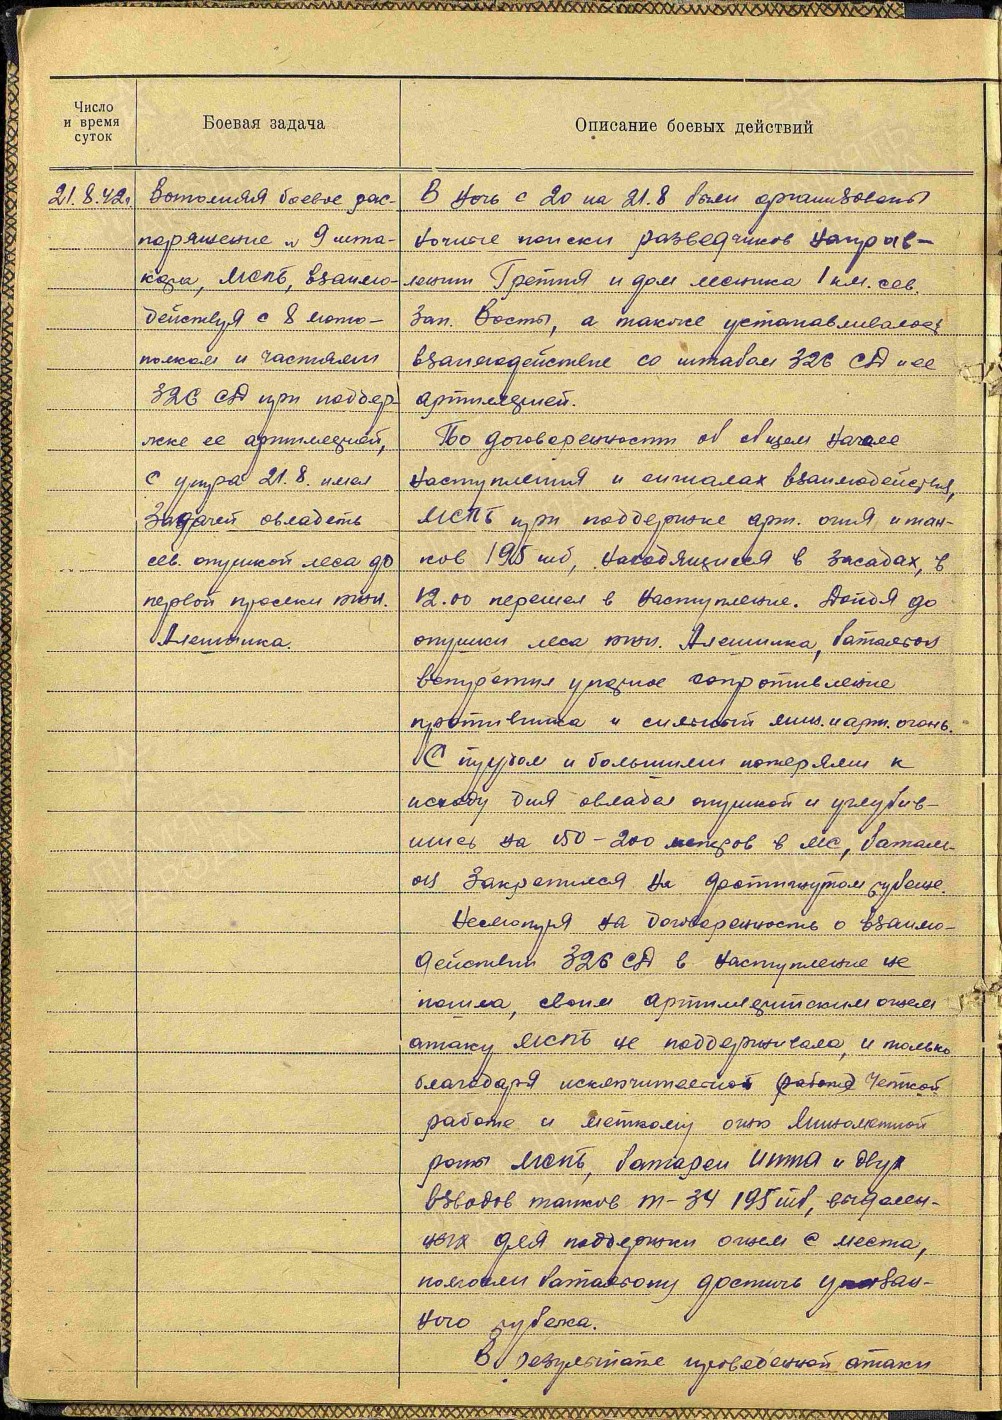 Число
и время
суток
Боевая задача
Описание боевых действий
21.8.42г
Выполняя боевое рас-
поряжение № 9 шта-
кора, МСПБ, взаимо-
действуя с 8 мото-
полком и частями
326 СД при поддер-
жке ее артиллерией,
с утра 21.8. имел
задачей овладеть
сев. опушкой леса до
первой просеки южн.
Алешинка.
В ночь с 20 на 21.8 были организованы
ночные поиски разведчиков направ-
лении Гретня и дом лесника 1 км. сев.
зап. Восты, а также устанавливалось
взаимодействие со штабом 326 СД и ее
артиллерией.
По договоренности об общем начале
наступления и сигналах взаимодействия,
МСПБ при поддержке арт. огня и тан-
ков 195 тб, находящихся в засадах, в
12.00 перешел в наступление. Дойдя до
опушки леса южн. Алешинка, батальон
встретил упорное сопротивление
противника и сильный мин. и арт. огонь.
С трудом и большими потерями к
исходу дня овладел опушкой и углубив-
шись на 150-200 метров в лес, батальон-
он закрепился на достигнутом рубеже.
Несмотря на договоренность о взаимо-
действии 326 СД в наступление не
пошла, своим артиллерийским огнем
атаку МСПБ не поддерживала, и только
благодаря исключительной работе четкой
работе и меткому огню минометной
роты МСПБ, батареи ИПТА и двух
взводов танков Т-34 195 тб, выделен-
ных для поддержки огнем с места,
помогли батальону достичь указан-
ного рубежа.
В результате проведенной атаки